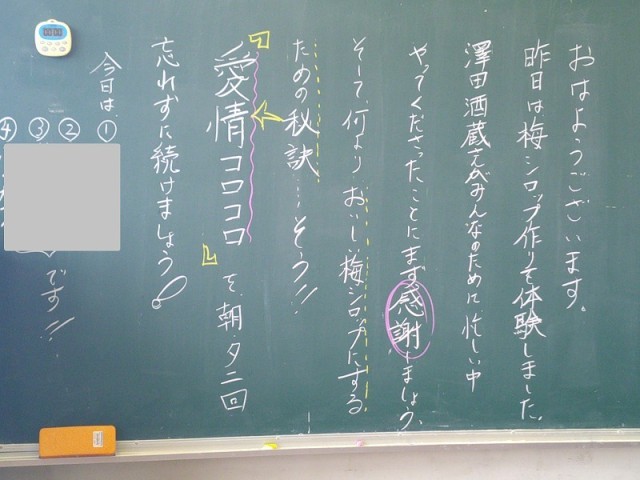 おはようございます。
昨日は梅シロップ作りを体験しました。
澤田酒蔵さんがみんなのために忙しい中
やってくださったことにまず感謝しましょう。
そして、何よりおいしい梅シロップにする
ための秘訣…そう!!
『愛情コロコロ』を、朝・夕二回
忘れずに続けましょう!
今日は、①
②
③ です!!
④